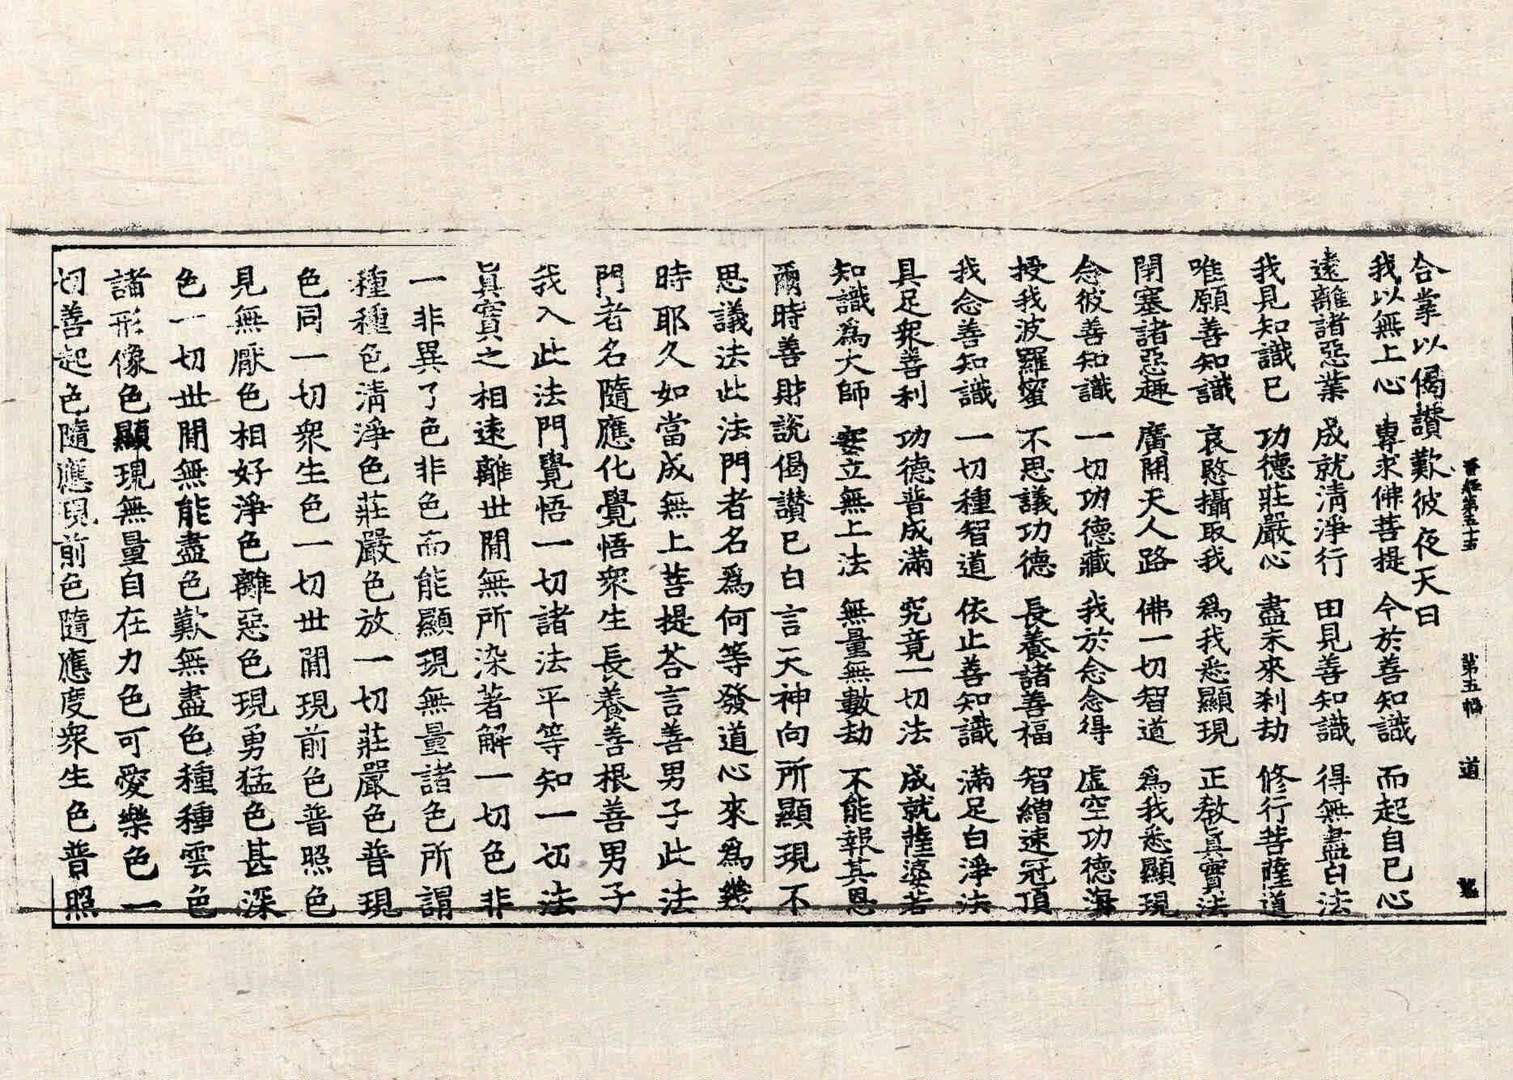 晉經第五十五　第五幅　道
合掌以偈讚歎彼夜天曰
我以無上心　專求佛菩提　今於善知識　而起自己心
遠離諸惡業　成就清淨行　由見善知識　得無盡白法
我見知識已　功德莊嚴心　盡未來刹劫　修行菩薩道
唯願善知識　哀愍攝取我　爲我悉顯現　正教眞實法
閉塞諸惡趣　廣開天人路　佛一切智道　爲我悉顯現
念彼善知識　一切功德藏　我於念念得　虛空功德海
授我波羅蜜　不思議功德　長養諸善福　智繒速冠頂
我念善知識　一切種智道　依止善知識　滿足白淨法
具足衆善利　功德普成滿　究竟一切法　成就薩婆若
知識爲大師　安立無上法　無量無數劫　不能報其恩
爾時善財說偈讚已白言天神向所顯現不
思議法此法門者名爲何等發道心來爲幾
時耶久如當成無上菩提荅言善男子此法
門者名隨應化覺悟衆生長養善根善男子
我入此法門覺悟一切諸法平等知一切法
眞實之相遠離世閒無所染著解一切色非
一非異了色非色而能顯現無量諸色所謂
種種色淸淨色莊嚴色放一切莊嚴色普現
色同一切衆生色一切世閒現前色普照色
見無厭色相好淨色離惡色現勇猛色甚深
色一切世閒無能盡色歎無盡色種種雲色
諸形像色顯現無量自在力色可愛樂色一
切善起色隨應現前色隨應度衆生色普照